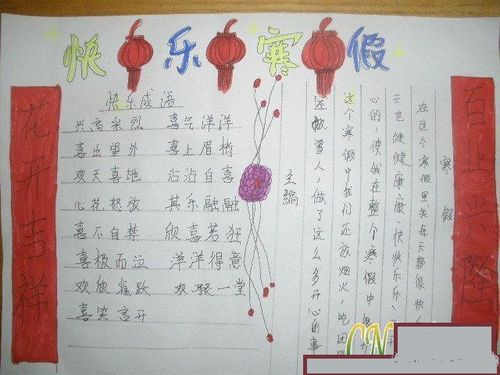 快乐寒假
花开吉祥
快乐成语
兴高采烈 喜气洋洋
喜出望外 喜上眉梢
欢天喜地 沾沾自喜
心花怒放 其乐融融
喜不自禁 欣喜若狂
喜极而泣 洋洋得意
欢欣雀跃 欢聚一堂
喜笑言开
主编
寒假
在这个寒假里我每天都很快
天也健健康康、快快乐乐、
心的，使我在整个寒假中
这个寒假中我们还放烟火，吃团
还做雪人，做了这么多开心的事
百业兴隆
CN